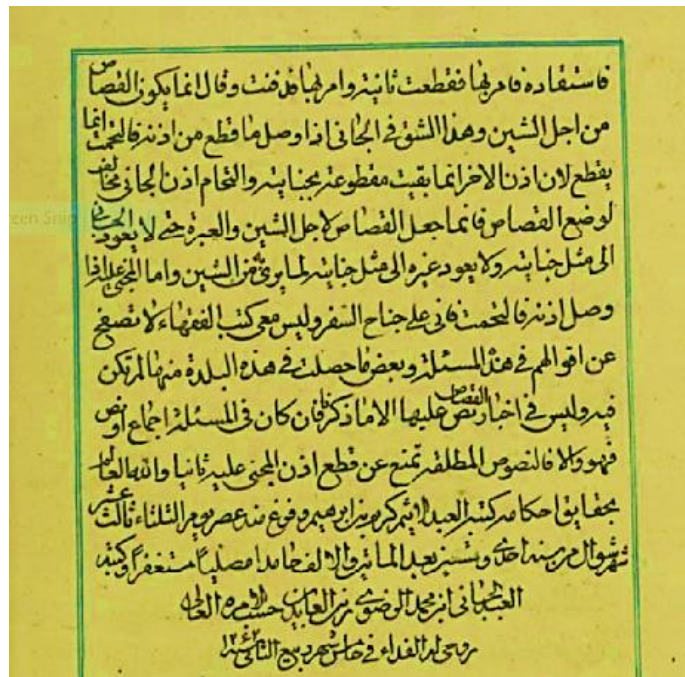 فاستقاده فامر بها فقطعت ثانية وامر بها فدفنت وقال انما يكون القصاص
من اجل الشين وهذا الشق في الجاني اذا وصل ما قطع من اذنه فالتحمت انما
يقطع لان اذن الاخر انما بقيت مقطوعة بجنايته والتحام اذن الجاني مخالف
لوضع القصاص فانما جعل القصاص لاجل الشين والعبرة حتى لا يعود الجاني
الى مثل جنايته ولا يعود غيره الى مثل جنايته لما يرى به من الشين واما المجني عليه اذا
وصل اذنه فالتحمت فاني على جناح السفر وليس معي كتب الفقهاء لاتصفح
عن اقوالهم في هذه المسئلة وبعض ما حصلت في هذه البلدة منها لم تكن
فيه وليس في اخبار القصاص نص عليها الا ما ذكرنا فان كان في المسئلة اجماع او نص
فهو والا فالنصوص المطلقة تمنع عن قطع اذن المجني عليه ثانيا والله العالم
بحقايق احكامه كتبه العبد الاثيم كريم بن ابرهيم وفرغ منه عصر يوم الثلثاء ثالث عشر
شهر شوال من سنة احدى وستين بعد الماتين والالف حامدا مصليا مستغفرا وكتبه
العبد الجاني ابن محمد الرضوي زين العابدين حسب الامره العالي
روحي له الفداء في خامس شهر ربيع الثاني سنه ١٢٦٢